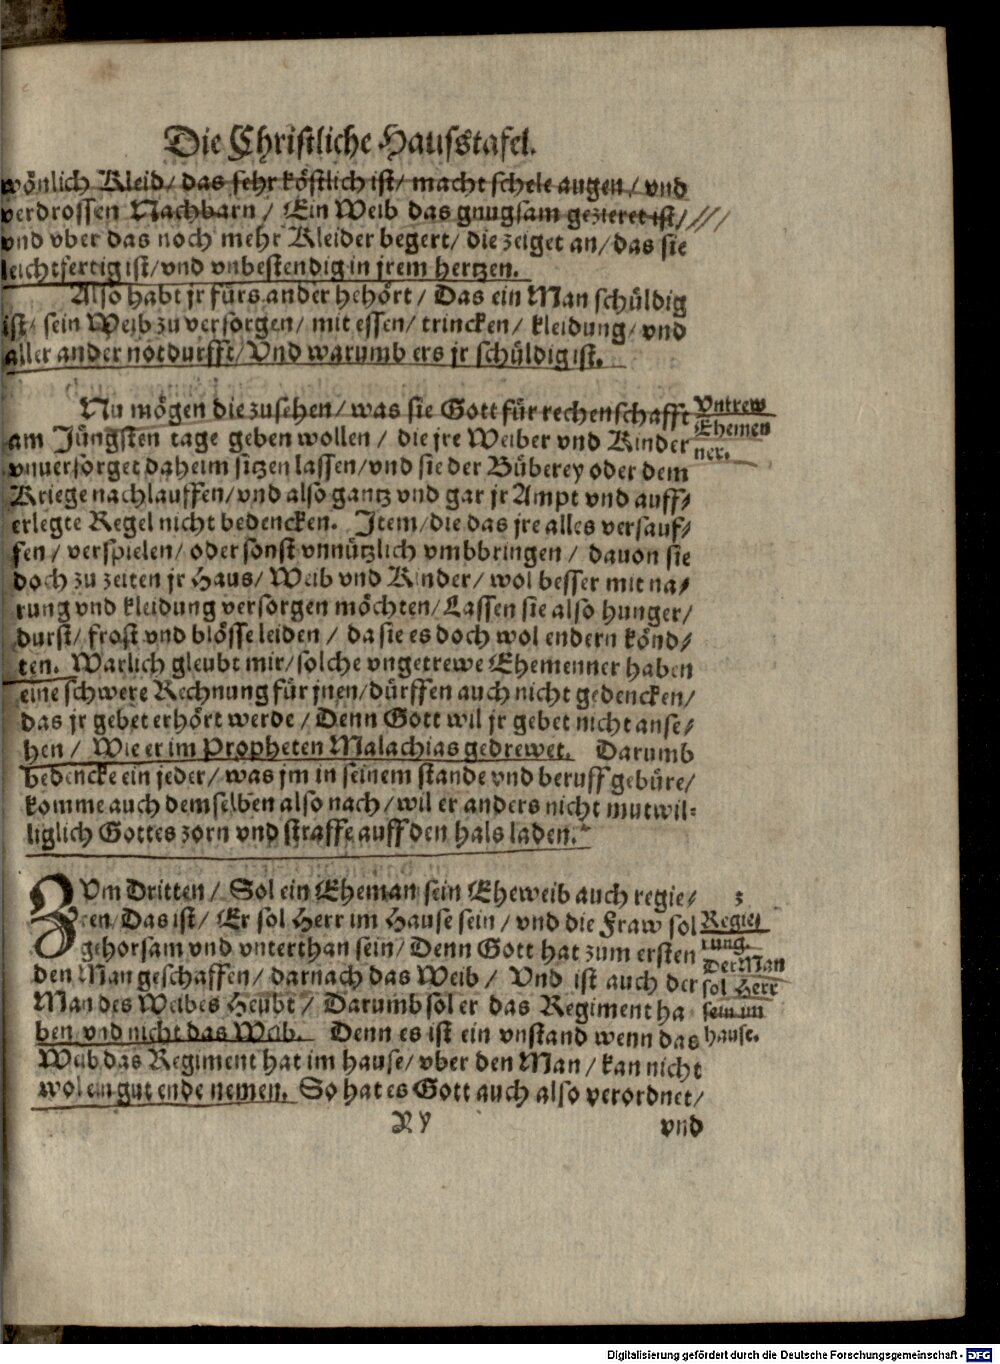 Die Christliche Haufstafel.
wönlich Kleid/ das sehr köstlich ist/ macht schele augen/ vnd
verdrossen Nachbarn/ Ein Weib das gnugsam gezieret ist/
vnd vber das noch mehr Kleider begert/ die zeiget an/ das sie
leichtfertig ist/ vnd vnbestendig in jrem hertzen.
Also habt jr fürs ander gehört/ Das ein Man schüldig
ist/ sein Weib zu versorgen/ mit essen/ trincken/ kleidung/ vnd
aller ander notdurfft/ Vnd warumb ers jr schüldig ist.
Nu mögen die zusehen/ was sie Gott für rechenschafft
am Jüngsten tage geben wollen/ die jre Weiber vnd Kinder
vnuersorget daheim sitzen lassen/ vnd sie der Büberey oder dem
Kriege nachlauffen/ vnd also gantz vnd gar jr Ampt vnd auff/
erlegte Regel nicht bedencken. Item/ die das jre alles versauf/
fen/ verspielen/ oder sonst vnnützlich vmbbringen/ dauon sie
doch zu zeiten jr Haus/ Weib vnd Kinder/ wol besser mit na/
rung vnd kleidung versorgen möchten/ Lassen sie also hunger/
durst/ frost vnd blösse leiden/ da sie es doch wol endern könd/
ten. Warlich gleubt mir/ solche vngetrewe Ehemenner haben
eine schwere Rechnung für jnen/ dürffen auch nicht gedencken/
das jr gebet erhört werde/ Denn Gott wil jr gebet nicht anse/
hen/ Wie er im Propheten Malachias gedrewet. Darumb
bedencke ein jeder/ was jm in seinem stande vnd beruff gebüre/
komme auch demselben also nach/ wil er anders nicht mutwil=
liglich Gottes zorn vnd straffe auff den hals laden.
Vntrew
Ehemen
ner.
ZVm Dritten/ Sol ein Eheman sein Eheweib auch regie/
ren/ Das ist/ Er sol Herr im Hause sein/ vnd die Fraw sol
gehorsam vnd vnterthan sein/ Denn Gott hat zum ersten
den Man geschaffen/ darnach das Weib/ Vnd ist auch der
Man des Weibes Heubt/ Darumb sol er das Regiment ha
ben vnd nicht das Weib. Denn es ist ein vnstand wenn das
Weib das Regiment hat im hause/ vber den Man/ kan nicht
wol ein gut ende nemen. So hat es Gott auch also verordnet/
3
Regie/
rung.
Der Man
sol Herr
sein im
hause.
N v
vnd
Digitalisierung gefördert durch die Deutsche Forschungsgemeinschaft - DFG